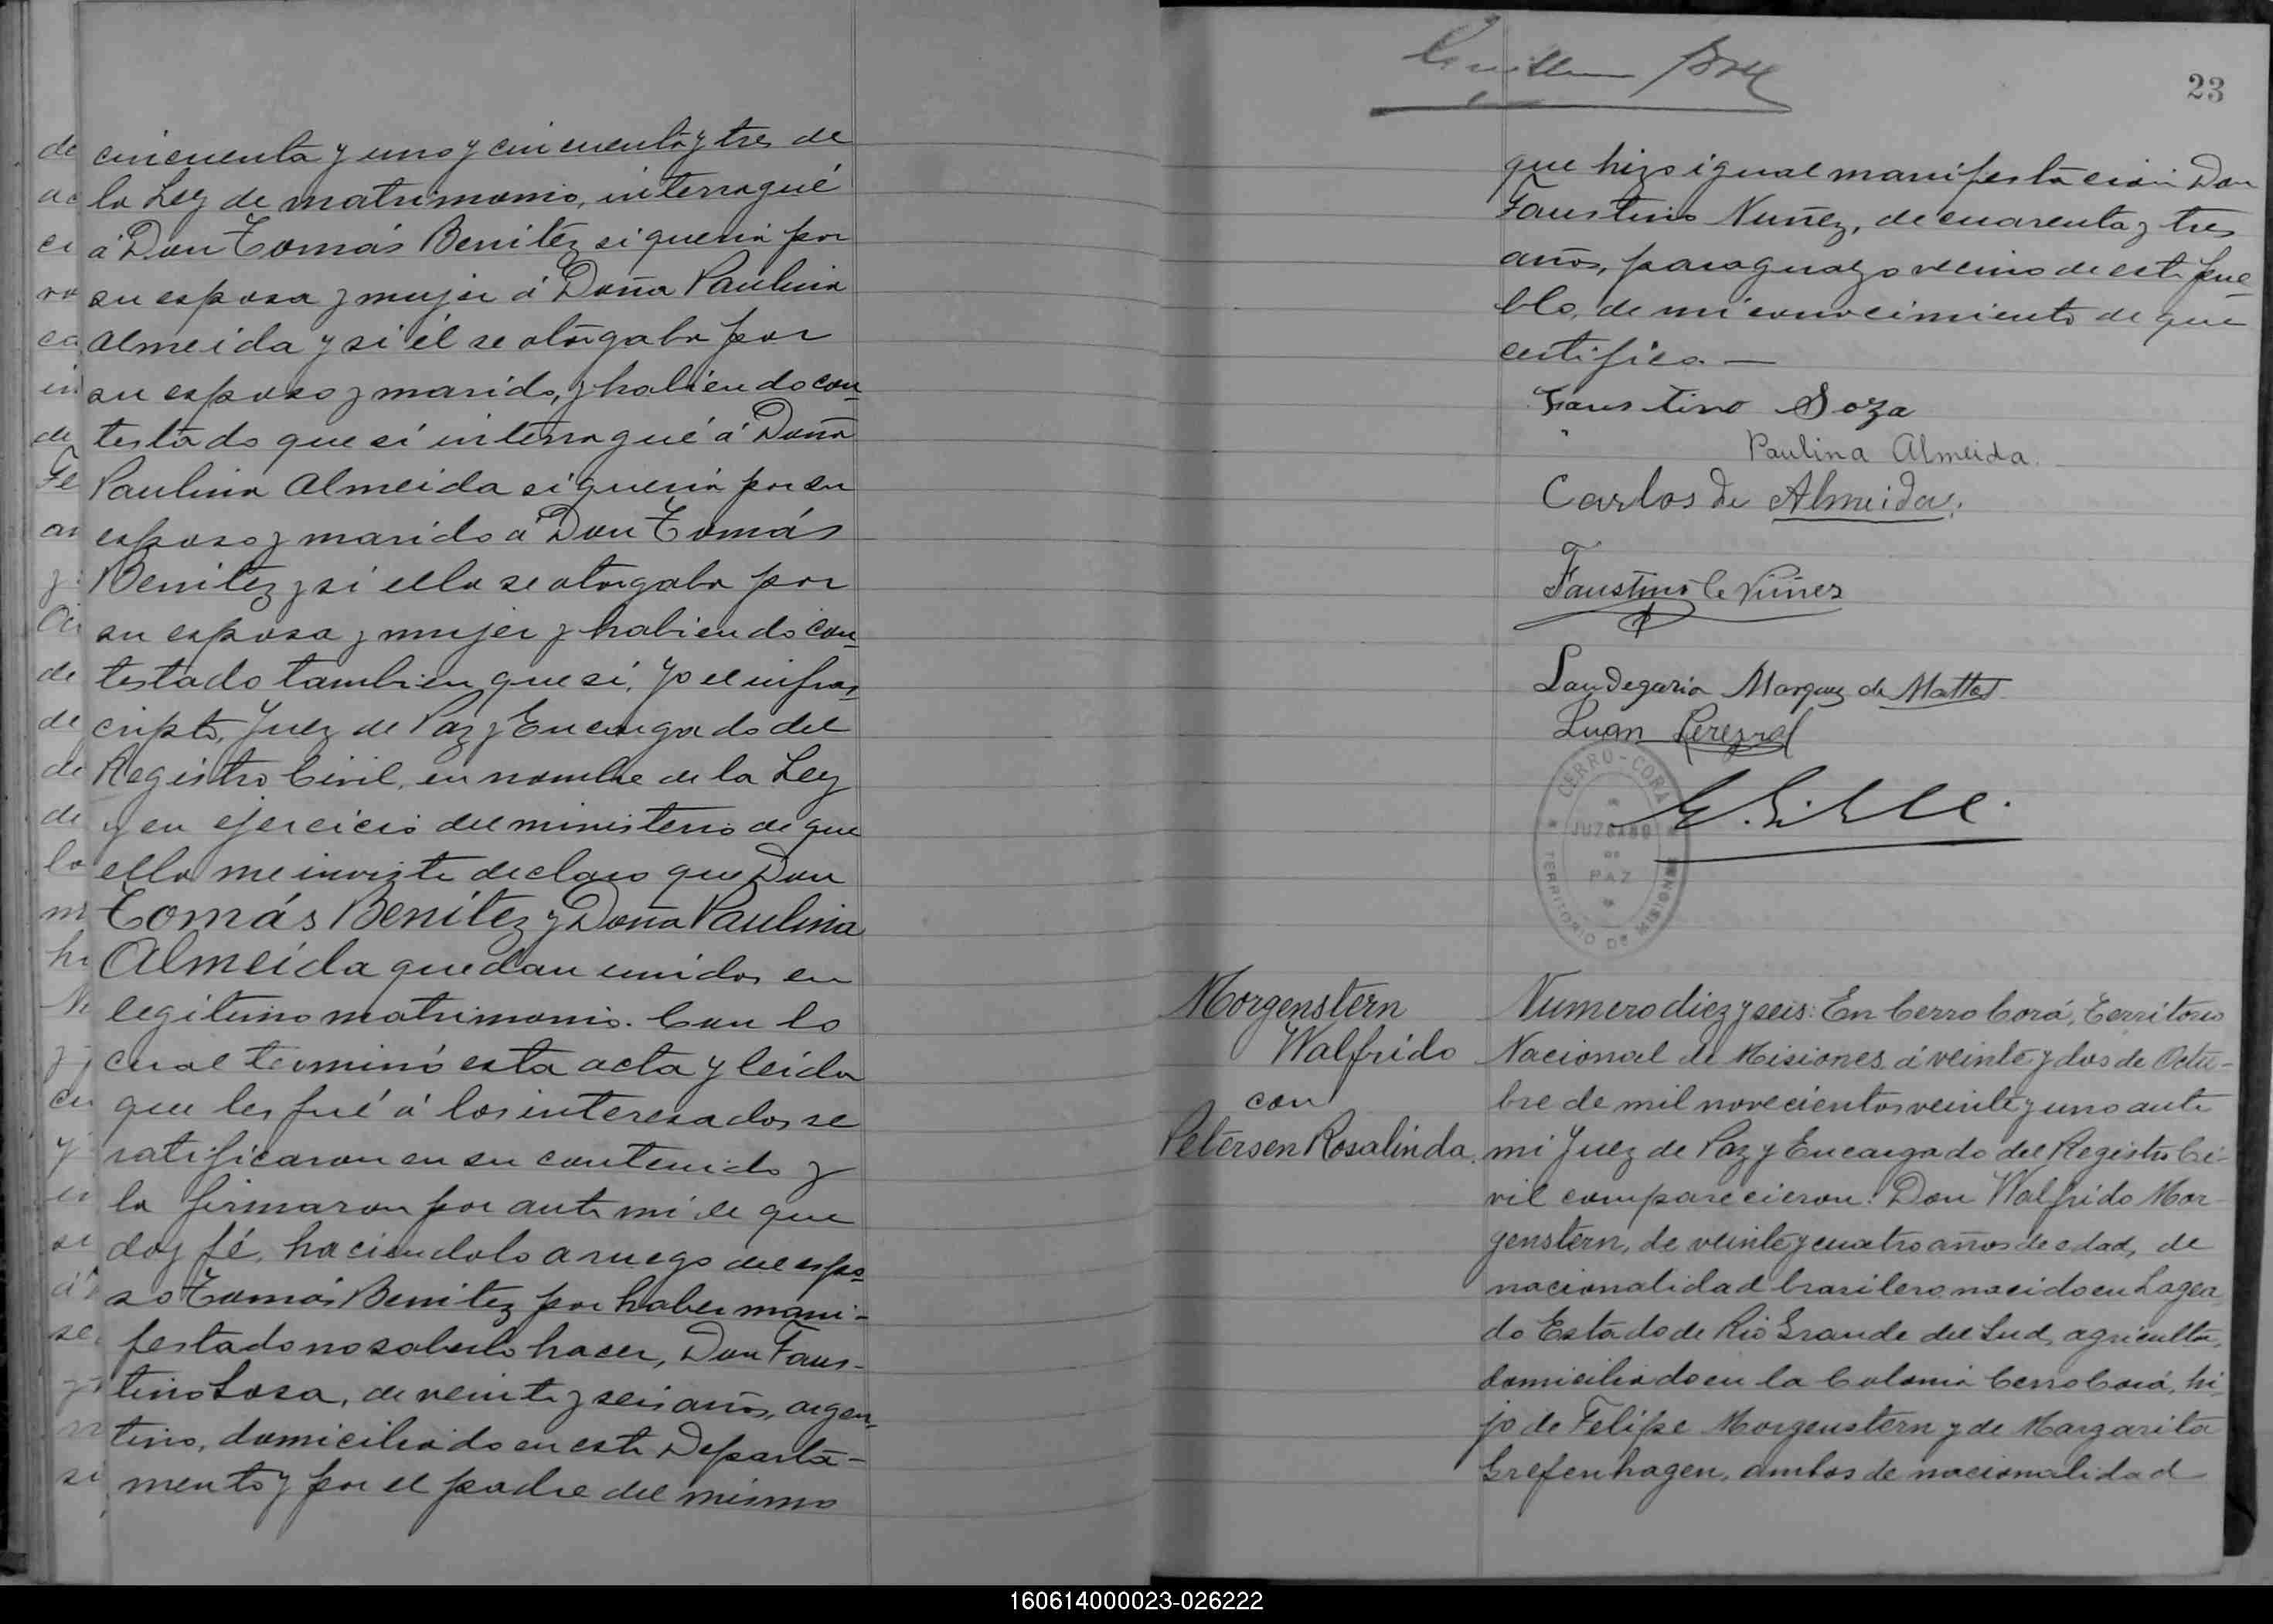 cincuenta y uno y cincuenta y tres de
la Ley de matrimonio, interrogué
á Don Tomás Benitez si queria por
su esposa y mujer á Doña Paulina
Almeida y si él se otorgaba por
su esposo y marido, y habiendo con-
testado que si interrogué á Doña
Paulina Almeida si queria por su
esposo y marido á Don Tomás
Benitez y si ella se otorgaba por
su esposa y mujer y habiendo con-
testado tambien que si. Yo el infras-
cripto, Juez de Paz y Encargado del
Registro Civil, en nombre de la Ley
y en ejercicio del ministerio de que
ella me inviste declaro que Don
Tomás Benítez y Doña Paulina
Almeida quedan unidos en
legitimo matrimonio. Con lo
cual terminó esta acta y leida
que les fué á los interesados se
ratificaron en su contenido y
la firmaron por ante mi de que
doy fé, haciendolo a ruego del espo-
so Tomás Benitez por haber mani-
festado no saberlo hacer, Don Faus-
tino Sosa, de veinte y seis años, argen-
tino, domiciliado en este Departa-
mento y por el padre del mismo
23
que hizo igual manifestación Don
Faustino Nuñez, de cuarenta y tres
años, paraguayo vecino de este pue-
blo, de mi conocimiento de que
certifico. —
Faustino Soza
Paulina Almeida.
Carlos de Almeida.
Faustino C Núñez
Laudegaria Marquez de Mattos
Juan
CERRO-CORA
JUZGADO
DE
PAZ
TERRITORIO DE MISIONES
Morgenstern
Walfrido
con
Petersen Rosalinda.
Numero diez y seis: En Cerro Corá, Territorio
Nacional de Misiones á veinte y dos de Octu-
bre de mil novecientos veinte y uno ante
mi Juez de Paz y Encargado del Registro Ci-
vil comparecieron: Don Walfrido Mor-
genstern, de veinte y cuatro años de edad, de
nacionalidad brasilero nacido en Lagea-
do Estado de Rio Grande del Sud, agricultor,
domiciliado en la Colonia Cerro Corá, hi-
jo de Felipe Morgenstern y de Margarita
Grefenhagen, ambos de nacionalidad
160614000023-026222